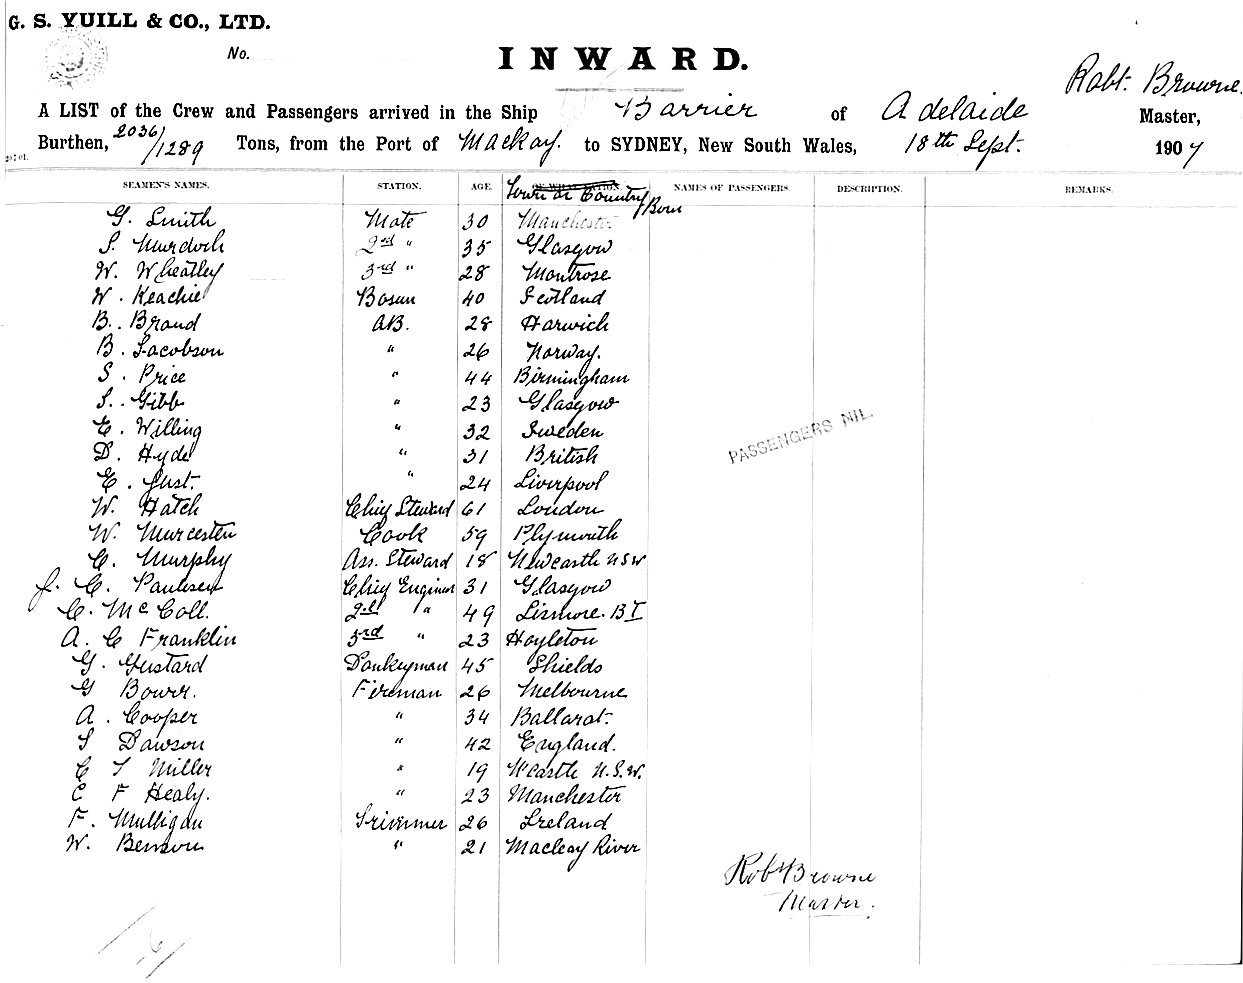 G. S. YUILL & CO., LTD.
No.
INWARD.
Robt. Browne.
A LIST of the Crew and Passengers arrived in the Ship Barrier of Adelaide Master,
Burthen, 2036/1289 Tons, from the Port of Mackay. to SYDNEY, New South Wales, 18th Sept. 1907
SEAMEN'S NAMES. STATION. AGE. Town or Country Born NAMES OF PASSENGERS. DESCRIPTION. REMARKS.
G. Smith Mate 30 Manchester
S. Murdoch 2nd " 35 Glasgow
W. Wheatley 3rd " 28 Montrose
W. Keachie Bosun 40 Scotland
B. Brand AB. 28 Harwich
B. Jacobson " 26 Norway.
S. Price " 44 Birmingham
S. Gibb " 23 Glasgow
E. Willing " 32 Sweden
D. Hyde " 31 British
E. Just. " 24 Liverpool
W. Hatch Chief Steward 61 London
W. Murcesten Cook 59 Plymouth
C. Murphy Ass. Steward 18 Newcastle NSW
J. C. Paulsen Chief Engineer 31 Glasgow
C. McColl. 2nd " 49 Lismore. B I
A. C Franklin 3rd " 23 Hoyleton
G. Gustard Donkeyman 45 Shields
G Bower. Fireman 26 Melbourne
A. Cooper " 34 Ballarat.
S Dawson " 42 England.
C T Miller " 19 N'castle N.S.W.
C F Healy. " 23 Manchester
F. Mulligan Trimmer 26 Ireland
W. Benson " 21 Macleay River
PASSENGERS NIL.
Robt Browne
Master.